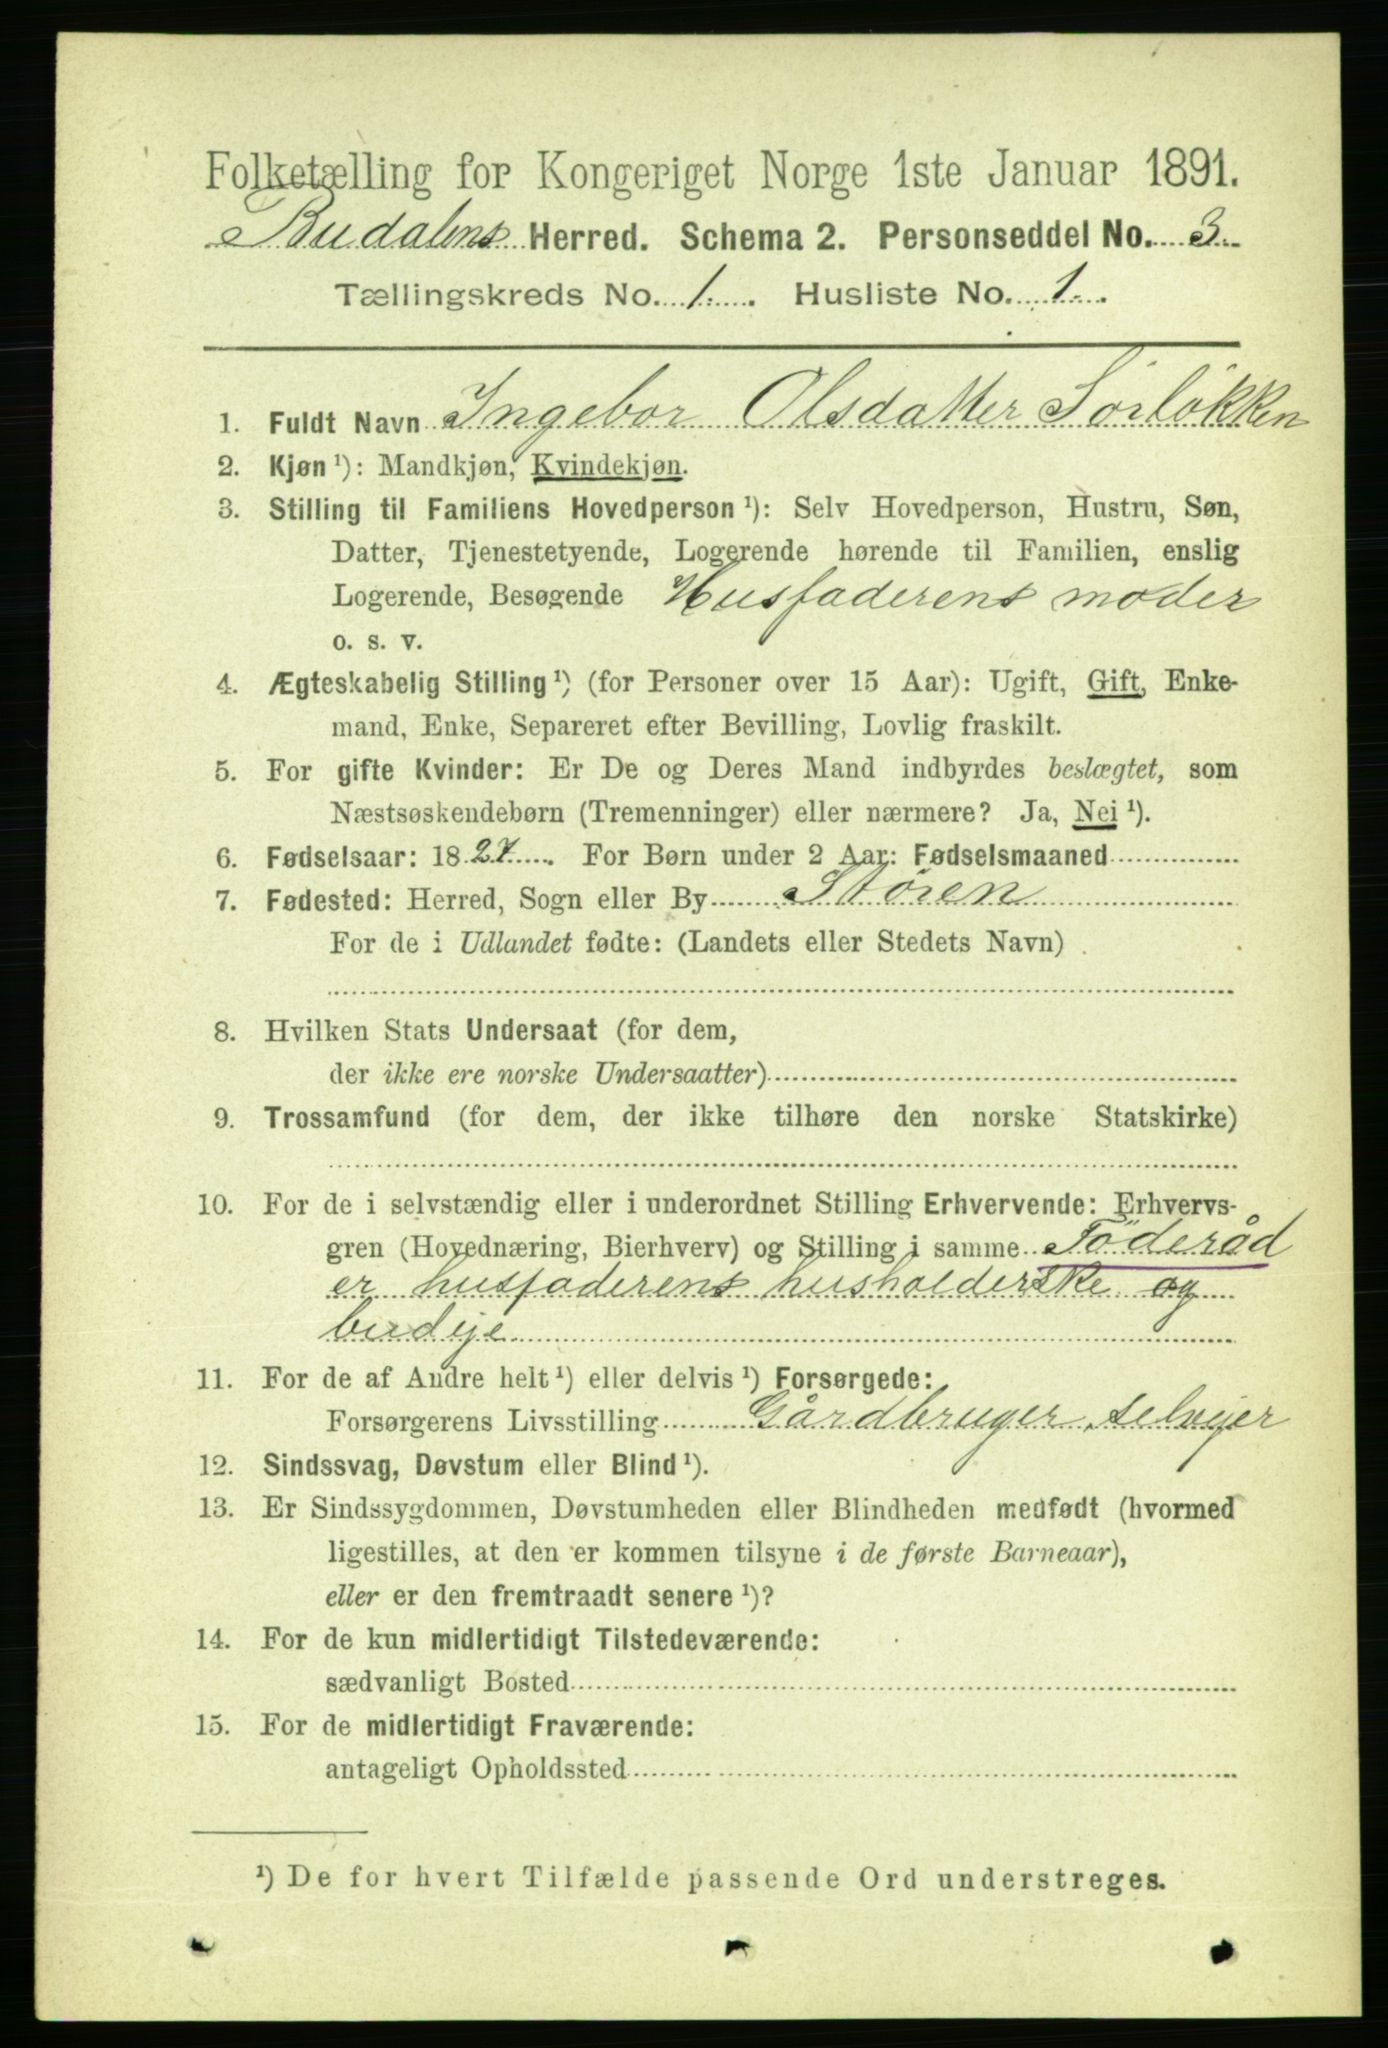 Folketælling for Kongeriget Norge 1ste Januar 1891.
Budalens Herred. Schema 2. Personseddel No. 3.
Tællingskreds No. 1. Husliste No. 1.
1. Fuldt Navn Ingebor Olsdatter Sørløkken
2. Kjøn ¹): Mandkjøn, Kvindekjøn.
3. Stilling til Familiens Hovedperson ¹): Selv Hovedperson, Hustru, Søn,
Datter, Tjenestetyende, Logerende hørende til Familien, enslig
Logerende, Besøgende Husfaderens moder
o. s. v.
4. Ægteskabelig Stilling ¹) (for Personer over 15 Aar): Ugift, Gift, Enke-
mand, Enke, Separeret efter Bevilling, Lovlig fraskilt.
5. For gifte Kvinder: Er De og Deres Mand indbyrdes beslægtet, som
Næstsøskendebørn (Tremenninger) eller nærmere? Ja, Nei ¹).
6. Fødselsaar: 1827. For Børn under 2 Aar: Fødselsmaaned
7. Fødested: Herred, Sogn eller By Støren
For de i Udlandet fødte: (Landets eller Stedets Navn)
8. Hvilken Stats Undersaat (for dem,
der ikke ere norske Undersaatter)
9. Trossamfund (for dem, der ikke tilhøre den norske Statskirke)
10. For de i selvstændig eller i underordnet Stilling Erhvervende: Erhvervs-
gren (Hovednæring, Bierhverv) og Stilling i samme Föderåd
er husfaderens husholderske og
budeje
11. For de af Andre helt ¹) eller delvis ¹) Forsørgede:
Forsørgerens Livsstilling Gårdbruger, selvejer
12. Sindssvag, Døvstum eller Blind ¹).
13. Er Sindssygdommen, Døvstumheden eller Blindheden medfødt (hvormed
ligestilles, at den er kommen tilsyne i de første Barneaar),
eller er den fremtraadt senere ¹)?
14. For de kun midlertidigt Tilstedeværende:
sædvanligt Bosted
15. For de midlertidigt Fraværende:
antageligt Opholdssted
¹) De for hvert Tilfælde passende Ord understreges.